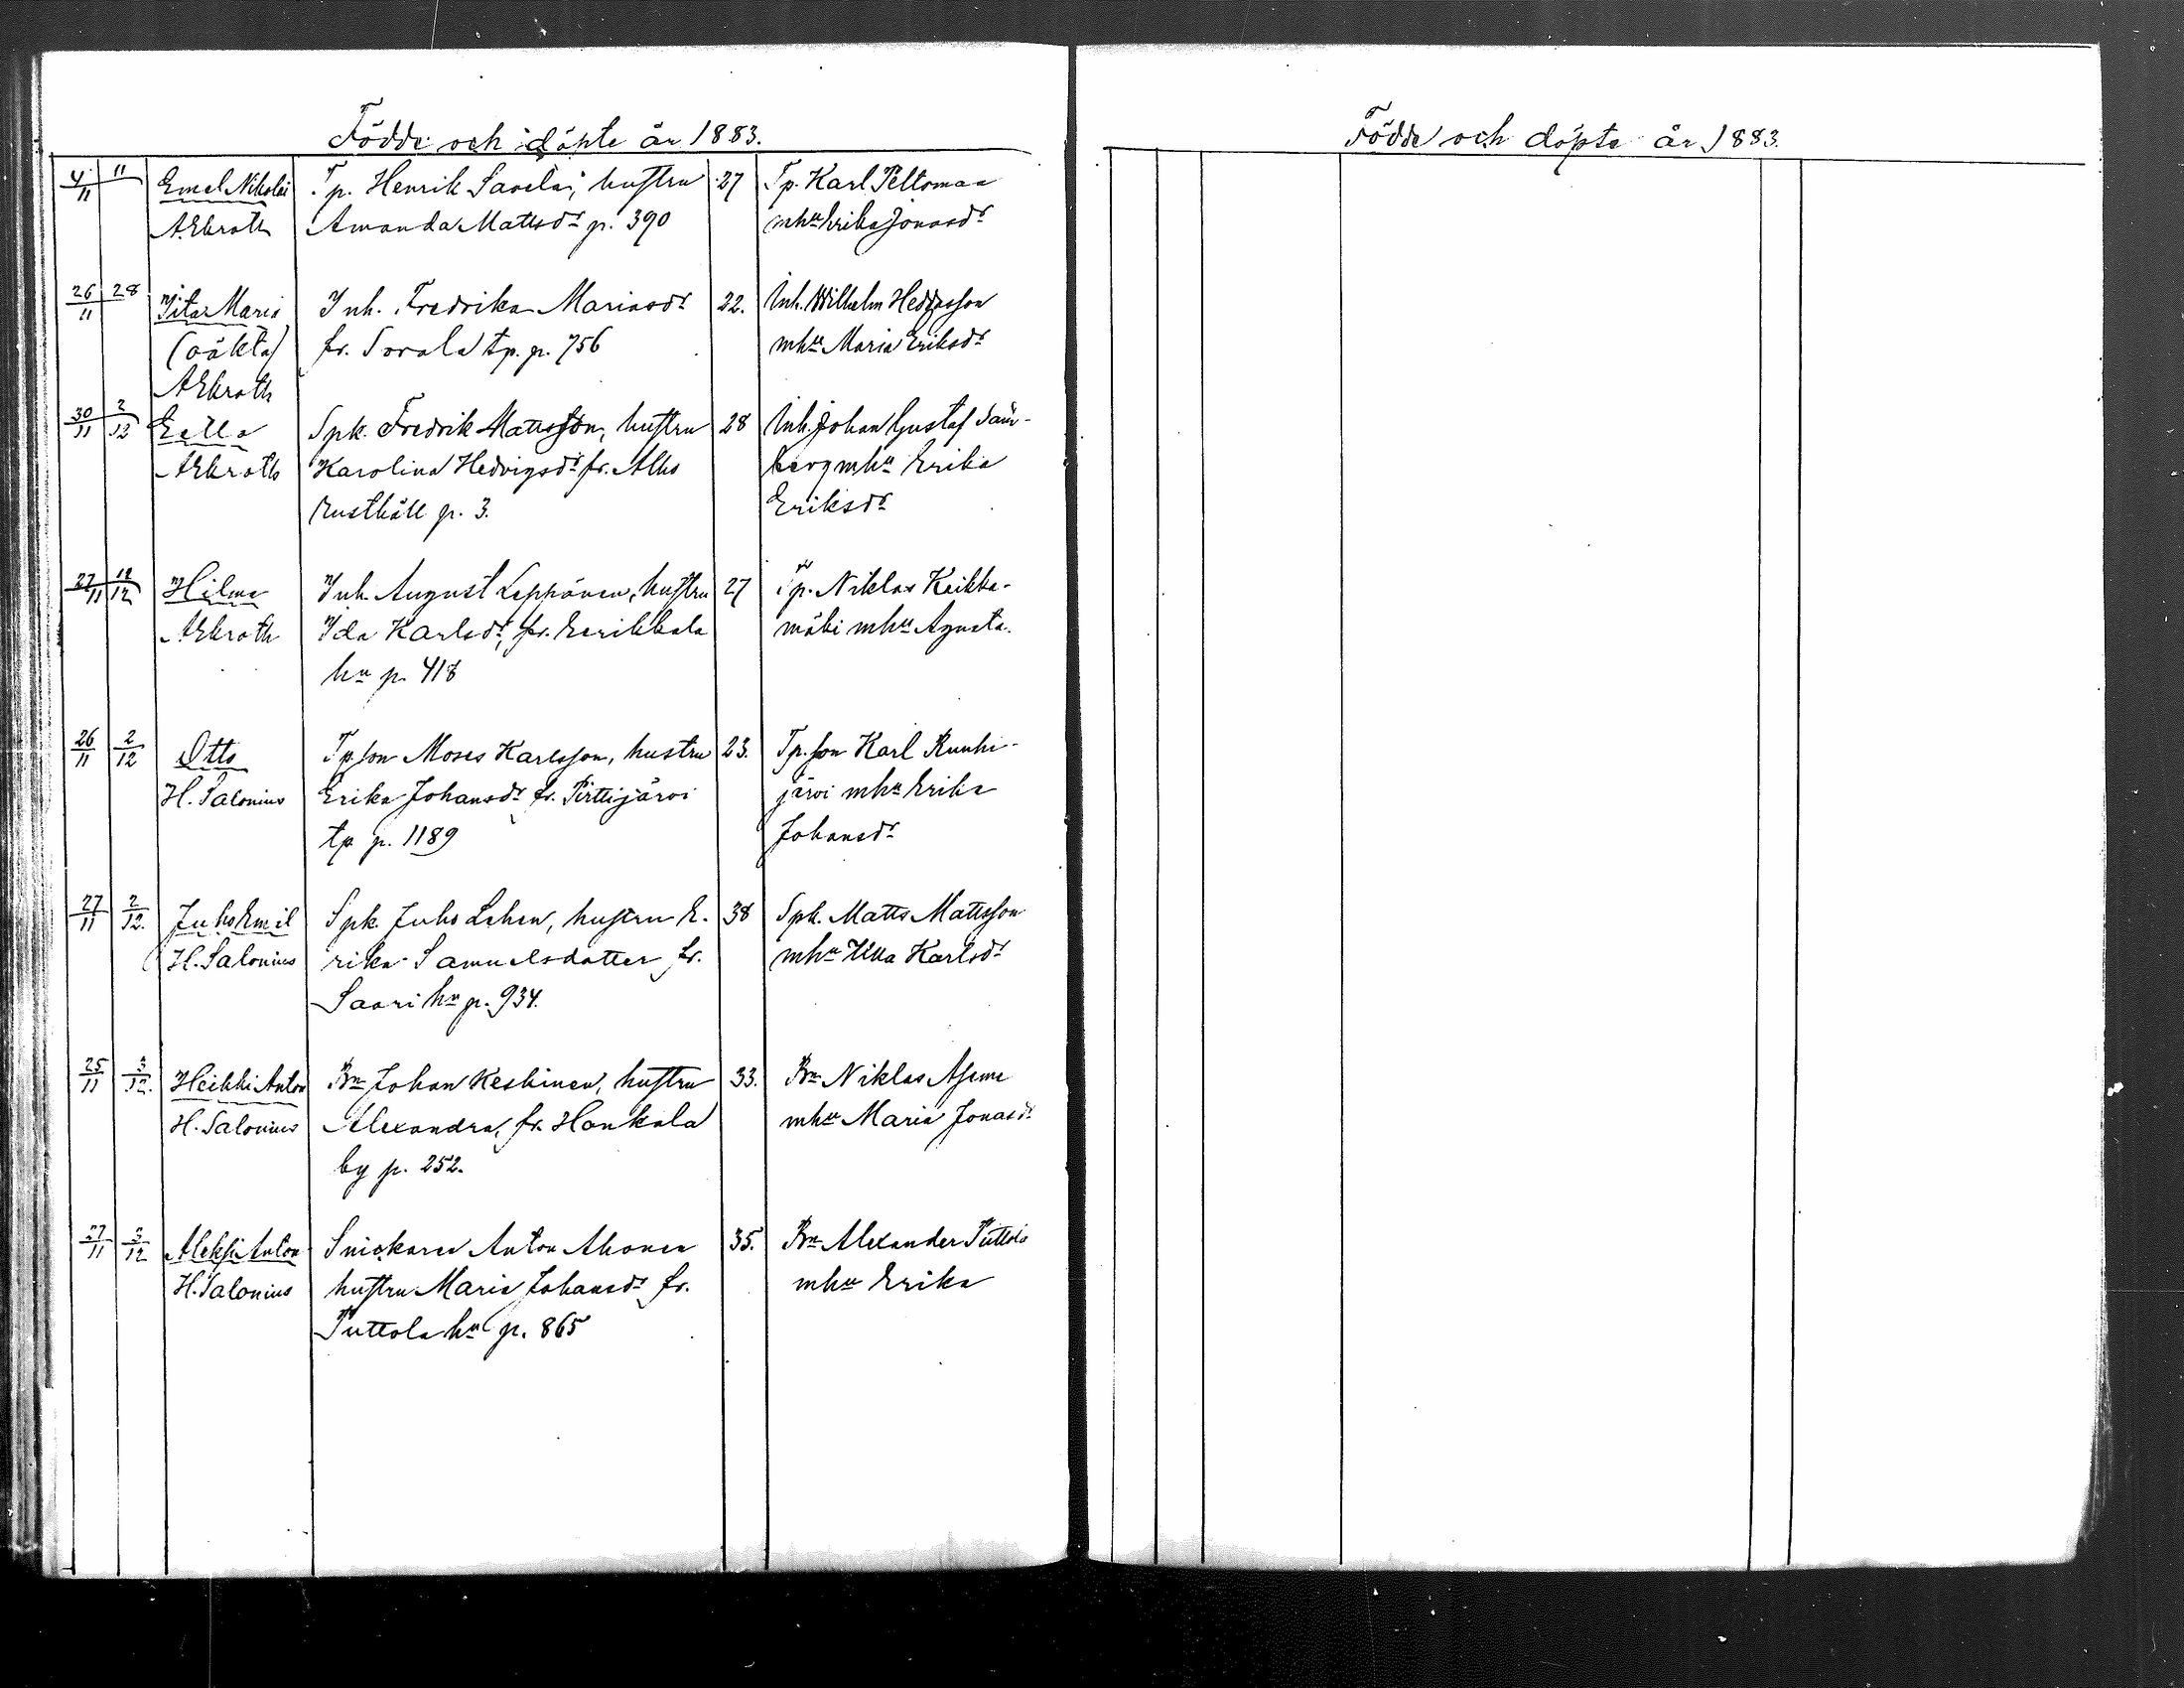 Födde och döpte år 1883.
4/11 11 Emel Nikolai Tp. Henrik Savela, hustru 27 Tp. Karl Peltomaa
A Ekroth Amanda Mattsdr p. 390 mhu Erika Jonasdr
26/11 28 Maria Inh. Fredrika Mariasdr 22. Inh. Wilhelm
(oäkta) fr. Sorola tp. p. 756 mhu Maria Eriksdr
A Ekroth
30/11 2/12 Eella Spk. Fredrik Mattsson, hustru 28 Inh. Johan Gustaf
A Ekroth Karolina Hedvigsdr fr. Alho berg mhu Erika
Rusthåll p. 3. Eriksdr
27/11 12/12 Hilma Inh. August Leppänen, hustru 27 Tp. Niklas Keikka-
A Ekroth Ida Karlsdr, fr. Eerikkala mäki mhu Agusta.
hn p. 418
26/11 2/12 Otto Tp.son Moses Karlsson, hustru 23. Tp.son Karl Ruuhi-
H. Salonius Erika Johansdr fr. Pirttijärvi järvi mhu Erika
tp p. 1189 Johansdr
27/11 2/12. Juho Emil Spk. Juho Lehen, hustru E- 38 Spk. Matts Mattsson
H. Salonius rika Samuelsdotter fr. mhu Ulla Karlsdr
Saari hn p. 934.
25/11 3/12. Heikki Anton Bn Johan Keskinen, hustru 33. Bn Niklas
H. Salonius Alexandra, fr. Honkola mhu Maria Jonasdr
by p. 252.
27/11 3/12 Aleksi Anton Snickaren Anton Ahonen 35. Bn Alexander Puttola
H. Salonius hustru Maria Johansdr fr. mhu Erika
Puttola hn p. 865
Födde och döpte år 1883.